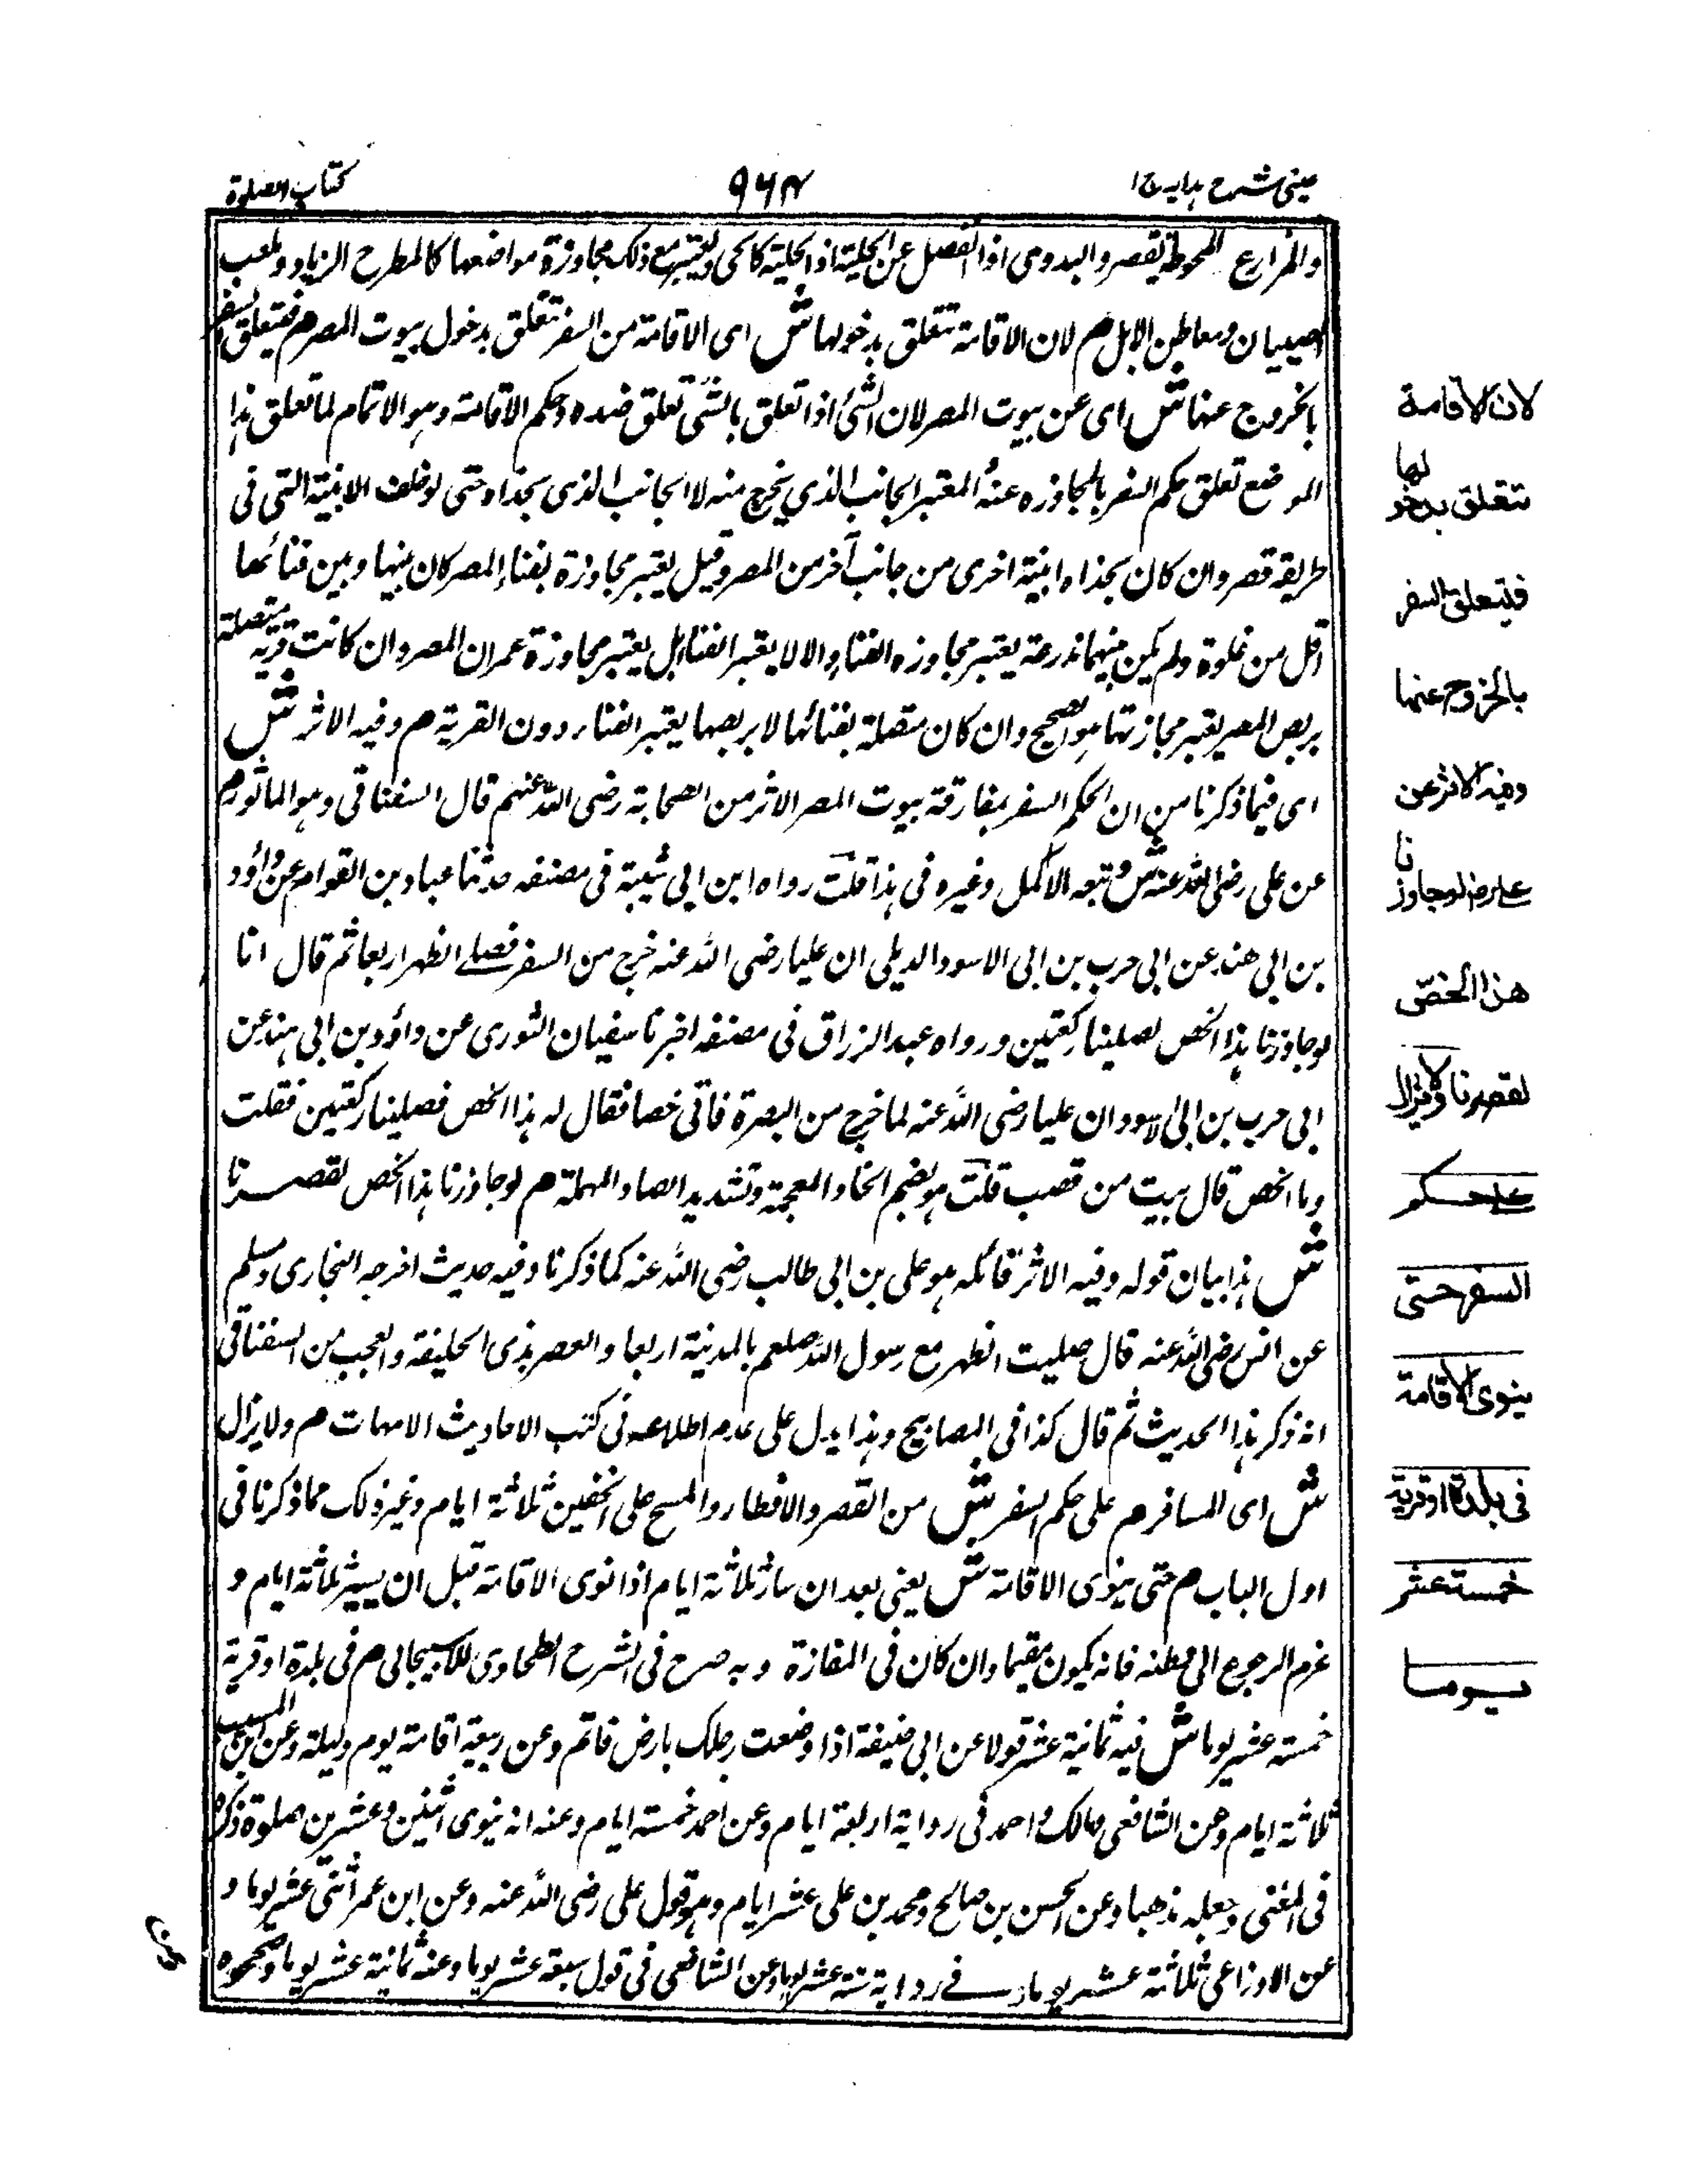 عینی شرح ہدایہ ج۱
۹۶۴
کتاب الصلوة
والمزارع المحوطة یقصر والبدوی اذا انفصل عن الحلیة اذا الحلیة کالحی ویعتبر مع ذلک مجاوزة مواضعہا کالمطرح الرماد وملعب
الصبیان ومعاطن الابل م لان الاقامة تتعلق بدخولہا ش ای الاقامة من السفر تتعلق بدخول بیوت المصر م فیتعلق السفر
بالخروج عنہا ش ای عن بیوت المصر لان الشئ اذا تعلق بالشئ تعلق ضدہ وحکم الاقامة وہو الاتمام لما تعلق بہذا
الموضع تعلق حکم السفر بالمجاوزہ عنہ المعتبر الجانب الذی یخرج منہ لا الجانب الذی بحذاہ حتی لو خلف الابنیة التی فی
طریقہ قصر وان کان بحذاہ ابنیة اخری من جانب آخر من المصر وقیل یعتبر مجاوزة بفناء المصر کان بینہا وبین فنائہا
اقل من غلوة ولم یکن بینہما مزرعة یعتبر مجاوزہ الفناء والا لا یعتبر الفناء بل یعتبر مجاوزة عمران المصر وان کانت قریة متصلة
بربض المصر یعتبر مجازتہا ہو الصحیح وان کان متصلة بفنائہا لا بربضہا یعتبر الفناء دون القریة م وفیہ الاثر ش
ای فیما ذکرنا من ان الحکم السفر بمفارقة بیوت المصر الاثر من الصحابة رضی اللہ عنہم قال السفناقی وہو الماثور م
عن علی رضی اللہ عنہ ش وتبعہ الاکمل وغیرہ فی ہذا قلت رواہ ابن ابی شیبة فی مصنفہ حدثنا عباد بن القوام عن داؤد
بن ابی ھند عن ابی حرب بن ابی الاسود الدیلی ان علیا رضی اللہ عنہ خرج من السفر فصلے الظہر اربعا ثم قال انا
لو جاوزنا ہذا الخص لصلینا رکعتین ورواہ عبد الرزاق فی مصنفہ اخبرنا سفیان الثوری عن داؤد بن ابی ہند عن
ابی حرب بن ابی الاسود ان علیا رضی اللہ عنہ لما خرج من البصرة فاتی خصا فقال لہ ہذا الخص فصلینا رکعتین فقلت
وما الخص قال بیت من قصب قلت ہو بضم الخاء المعجمة وتشدید الصاد المہملة م لو جاوزنا ہذا الخص لقصرنا
ش ہذا بیان قولہ وفیہ الاثر قائلہ ہو علی بن ابی طالب رضی اللہ عنہ کما ذکرنا وفیہ حدیث اخرجہ البخاری ومسلم
عن انس رضی اللہ عنہ قال صلیت الظہر مع رسول اللہ صلعم بالمدینة اربعا والعصر بذی الحلیفة والعجب من السفناقی
انہ ذکر ہذا الحدیث ثم قال کذا فی المصابیح وہذا یدل علی عدم اطلاعہ فی کتب الاحادیث الامہات م ولا یزال
ش ای المسافر م علی حکم السفر ش من القصر والافطار والمسح علی الخفین ثلاثة ایام وغیر ذلک مما ذکرنا فی
اول الباب م حتی ینوی الاقامة ش یعنی بعد ان سار ثلاثة ایام اذا نوی الاقامة قبل ان یسیر ثلاثة ایام و
عزم الرجوع الی وطنہ فانہ یکون مقیما وان کان فی المفازة وبہ صرح فی الشرح الطحاوی للاسبیجابی م فی بلدة او قریة
خمستہ عشر یوما ش فیہ ثمانیة عشر قولا عن ابی حنیفة اذا وضعت رجلک بارض فاتم وعن ربیعة اقامة یوم ولیلة وعن ابن المسیب
ثلاثة ایام وعن الشافعی ومالک واحمد فی روایة اربعة ایام وعن احمد خمستہ ایام وعنہ انہ ینوی اثنین وعشرین صلوة ذکرہ
فی المغنی وجعلہ مذہبا وعن الحسن بن صالح ومحمد بن علی عشر ایام وہو قول علی رضی اللہ عنہ وعن ابن عمر اثنتی عشر یوما و
عن الاوزاعی ثلاثة عشر یوما وفے روایة ستة عشر یوما وعن الشافعی فی قول سبعة عشر یوما وعنہ ثمانیة عشر یوما ونحوہ
لان الاقامة
تتعلق بدخولہا
فیتعلق السفر
بالخروج عنہا
وفیہ الاثر عن
علی رضـ لو جاوزنا
ھذا الخص
لقصرنا ولا یزال
علے حکم
السفر حتی
ینوی الاقامة
فی بلدة او قریة
خمستہ عشر
یوما